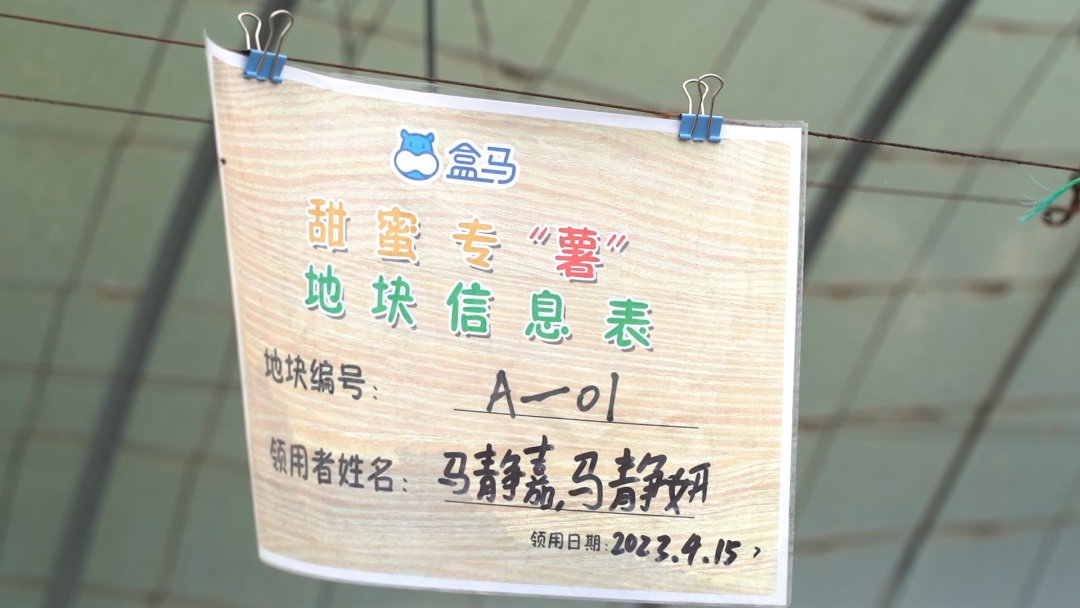 盒马
甜蜜专“薯”
地块信息表
地块编号： A-01
领用者姓名： 马静嘉,马静妍
领用日期：2023.4.15